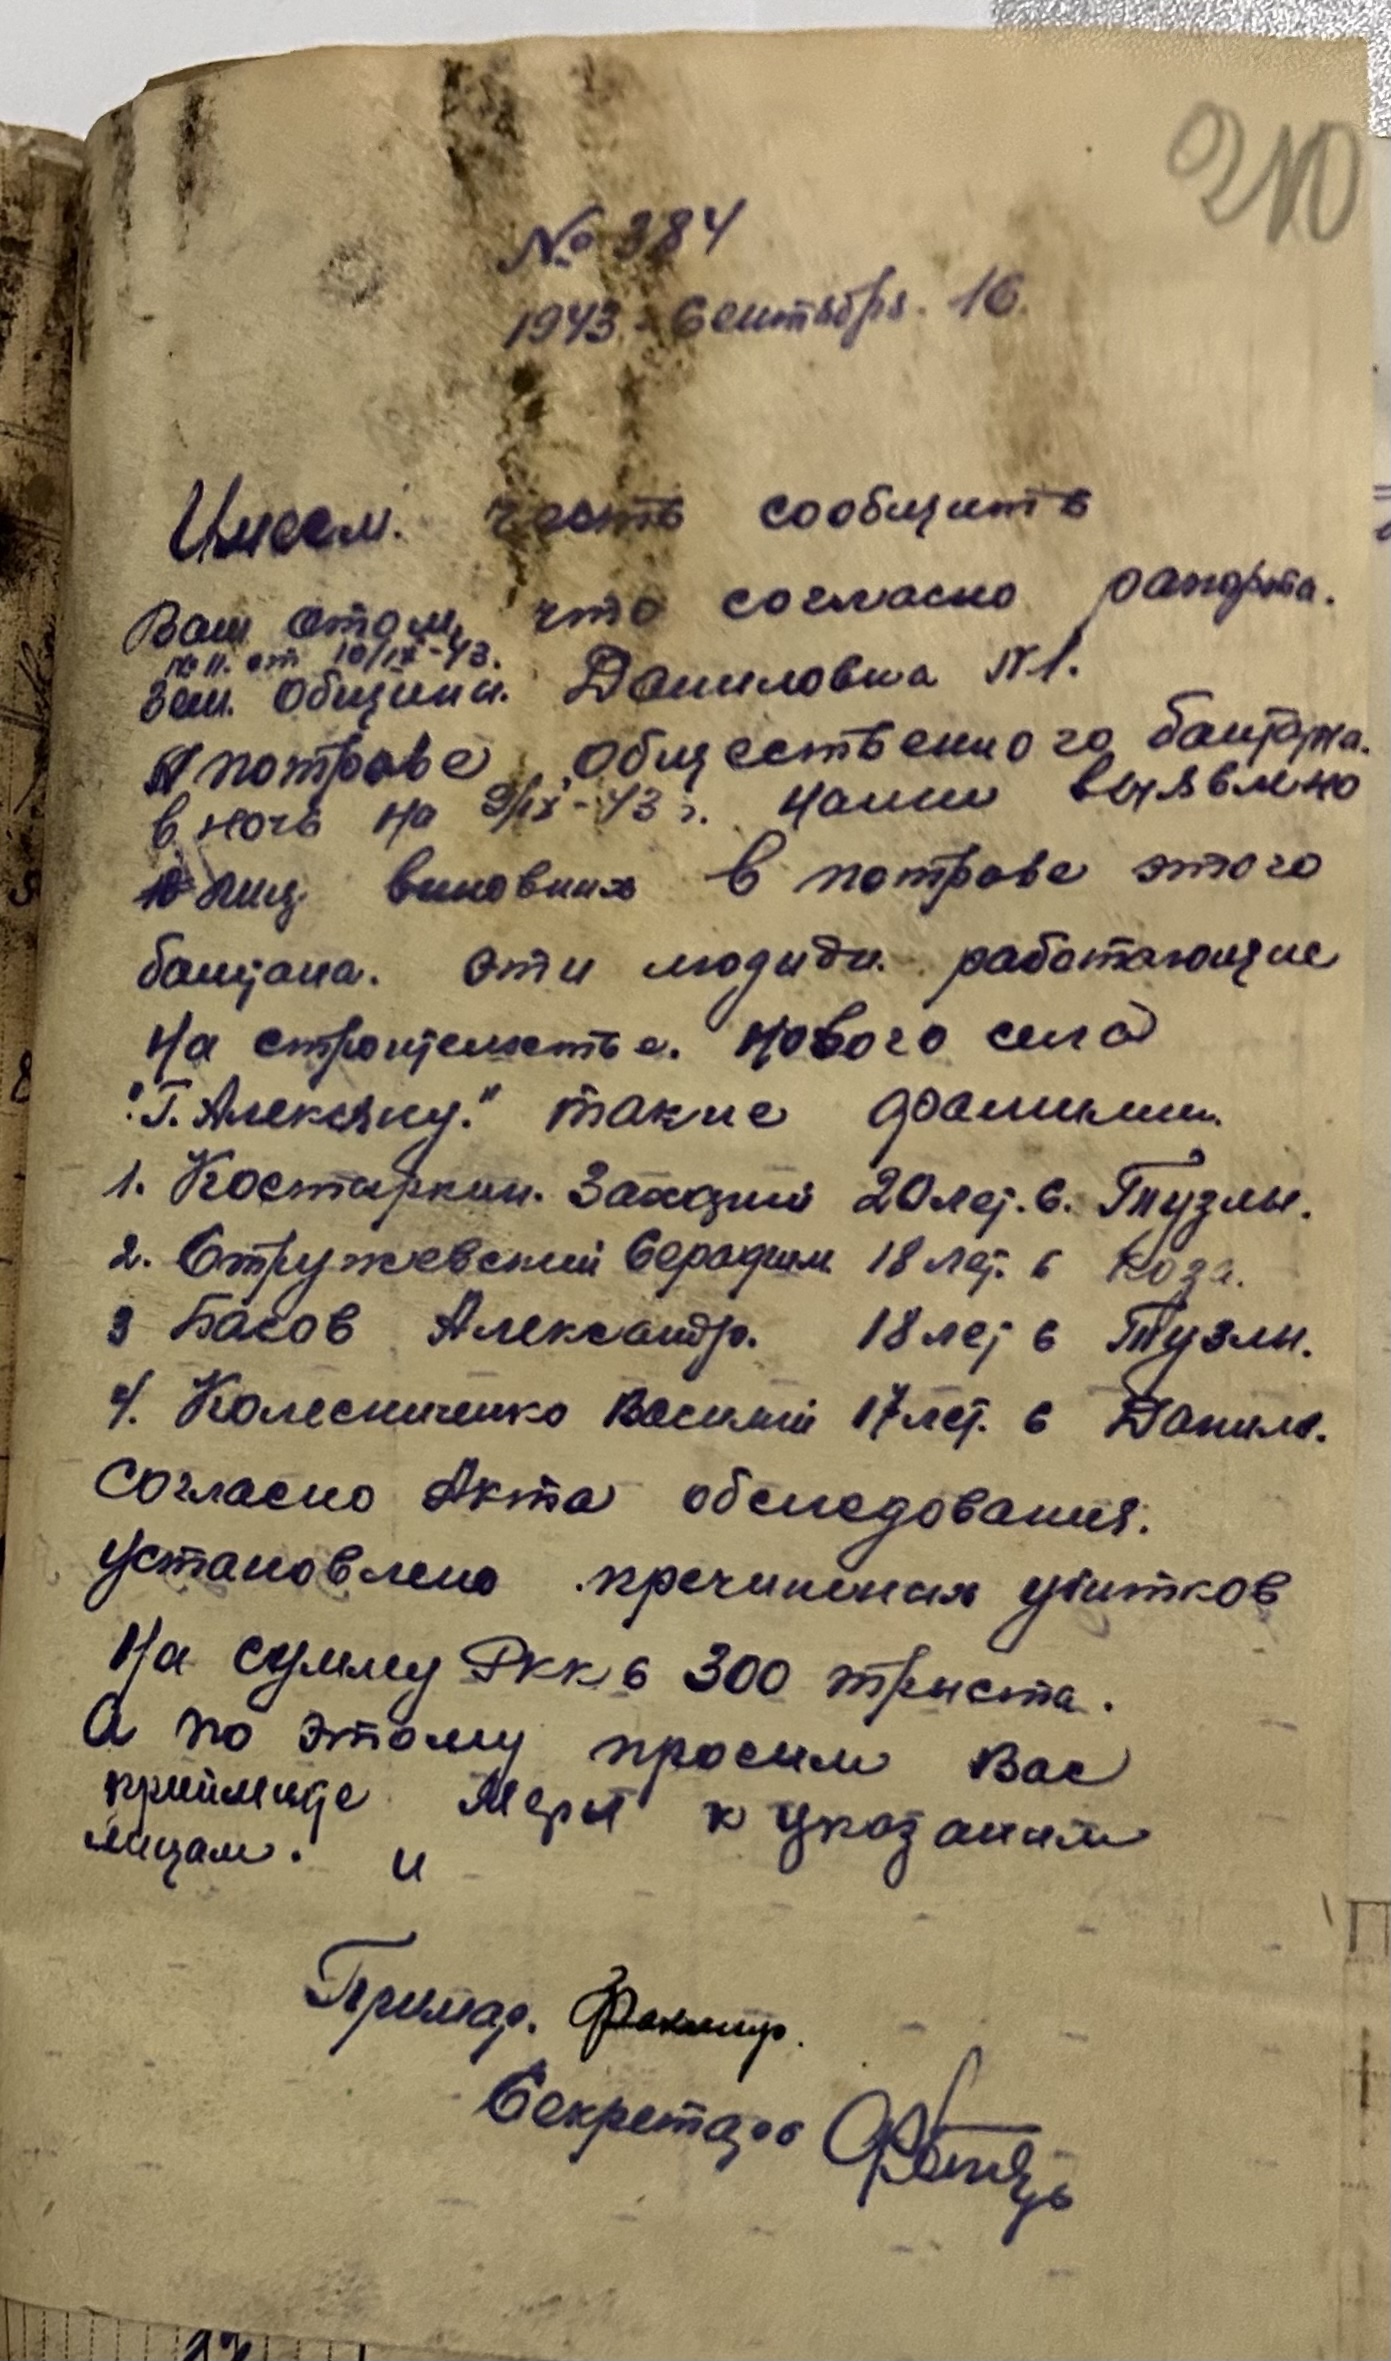 210
№ 384
1943 - Сентября. 16.
Имеем. честь сообщить
Вам отом, что согласно рапорта.
№ 11. от 10/IX-43.
зам. общины. Даниловка №1.
потраве общественного баштана.
в ночь на 9/IX-43 г. нами выявлено
лиц виновних в потраве этого
баштана. эти люди работающие
на строительстве. нового села
"Г. Алексяну." такие фамилии.
1. Костыркин. 20 лет. с. Тузлы.
2. Стружевский Серафим 18 лет. с Коза.
3 Басов Александр. 18 лет с Тузлы.
4. Колесниченко Василий 17 лет. с Данил.
Согласно Акта обследования.
установлено пречинения убитков
на сумму Ркк с 300 триста.
А по этому просим Вас
прийміте меры к указаним
лицам. и
Примар.
Секретарь